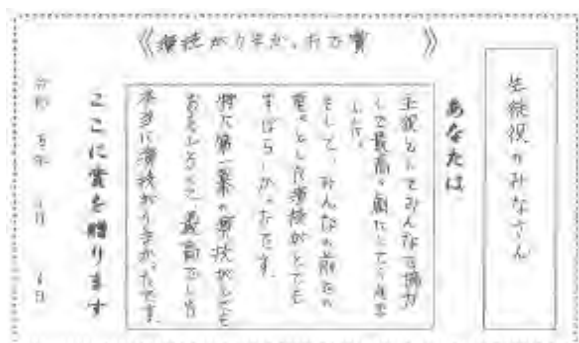 《演技がうまかったで賞》
生徒役のみなさん
あなたは
主役としてみんなで協力
して最高の劇にしてくれま
した。
そして、みんなの前での
堂々とした演技がとても
すばらしかったです。
特に第一幕の演技がとても
おもしろくて、最高でした
本当に演技がうまかったです。
ここに賞を贈ります